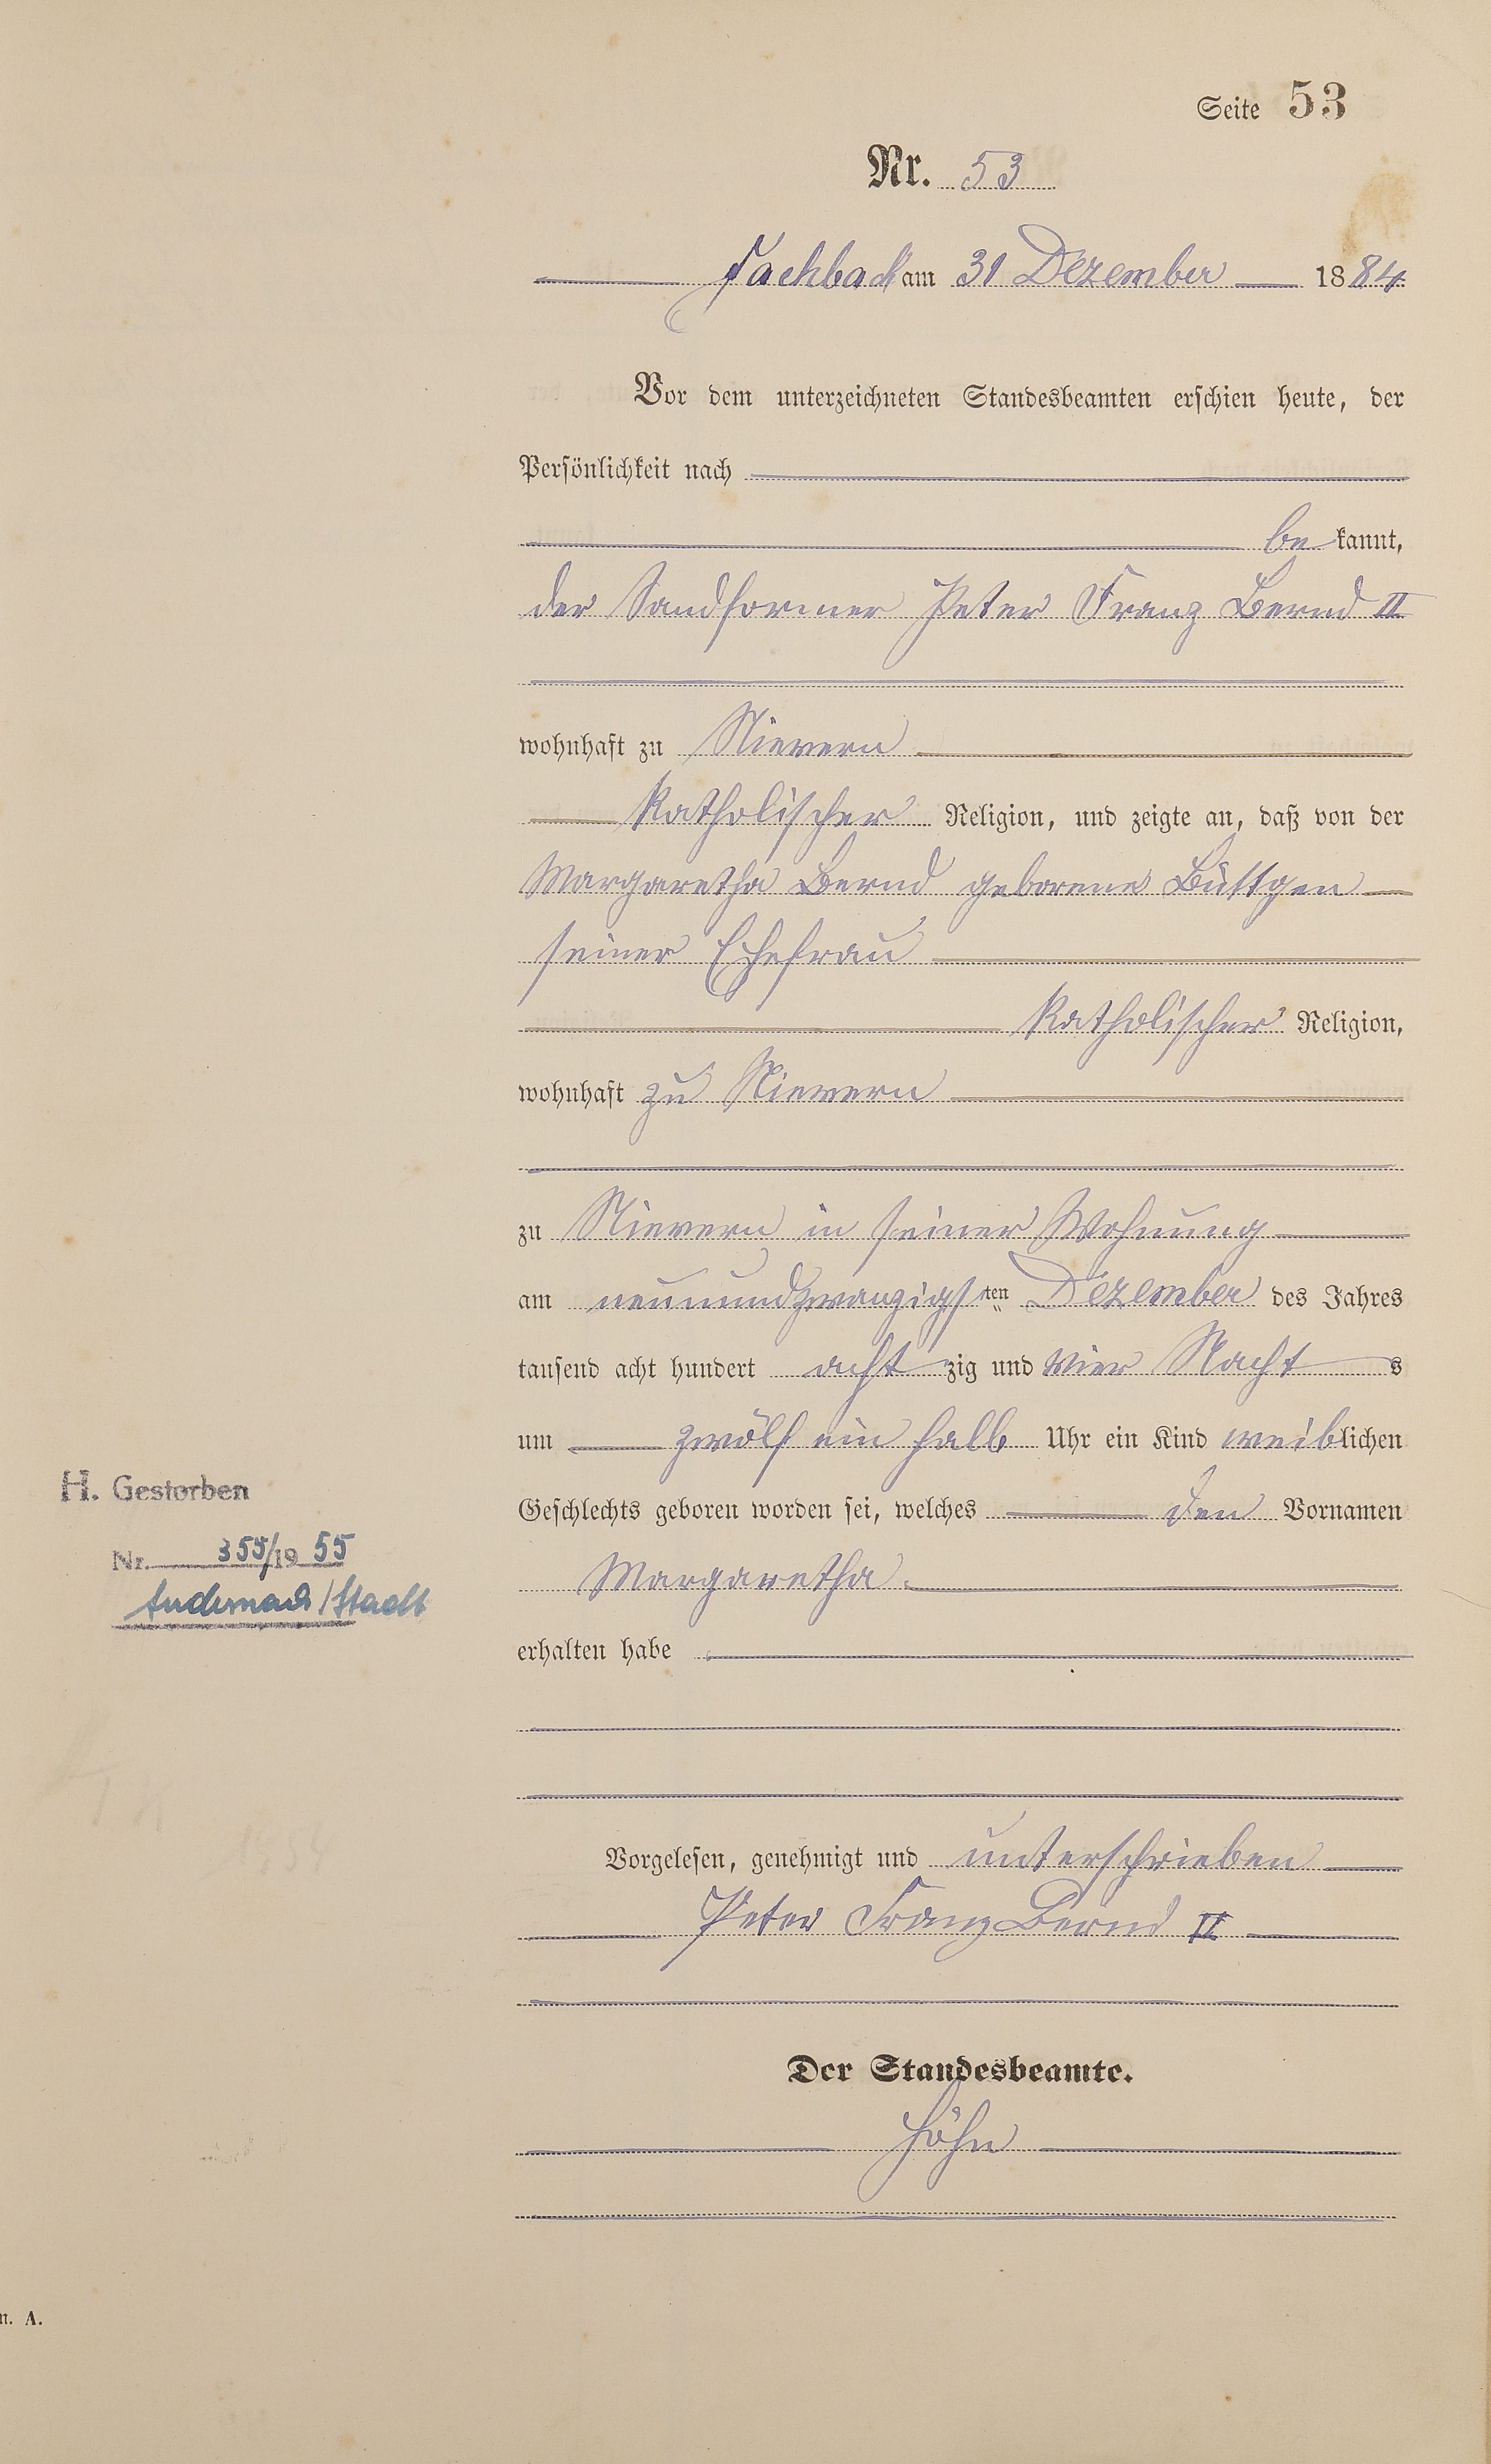 Seite 53
Nr. 53
Fachbach am 31 Dezember 1884
Vor dem unterzeichneten Standesbeamten erschien heute, der
Persönlichkeit nach
bekannt,
der Sandformer Peter Franz Bernd II
wohnhaft zu Nievern
katholischer Religion, und zeigte an, daß von der
Margaretha Bernd geborene Büttgen
seiner Ehefrau
katholischer Religion,
wohnhaft zu Nievern
zu Nievern in seiner Wohnung
am neunundzwanzigsten Dezember des Jahres
tausend acht hundert achtzig und vier Nachts
um zwölf ein halb Uhr ein Kind weiblichen
H. Gestorben
Geschlechts geboren worden sei, welches den Vornamen
Nr. 355/1955
Margaretha.
Andernach/Stadt
erhalten habe
Vorgelesen, genehmigt und unterschrieben
Peter Franz Bernd II
Der Standesbeamte.
Höhn
n. A.